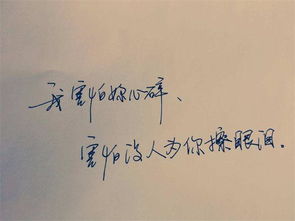 我害怕妳心碎、
害怕没人为你擦眼泪.